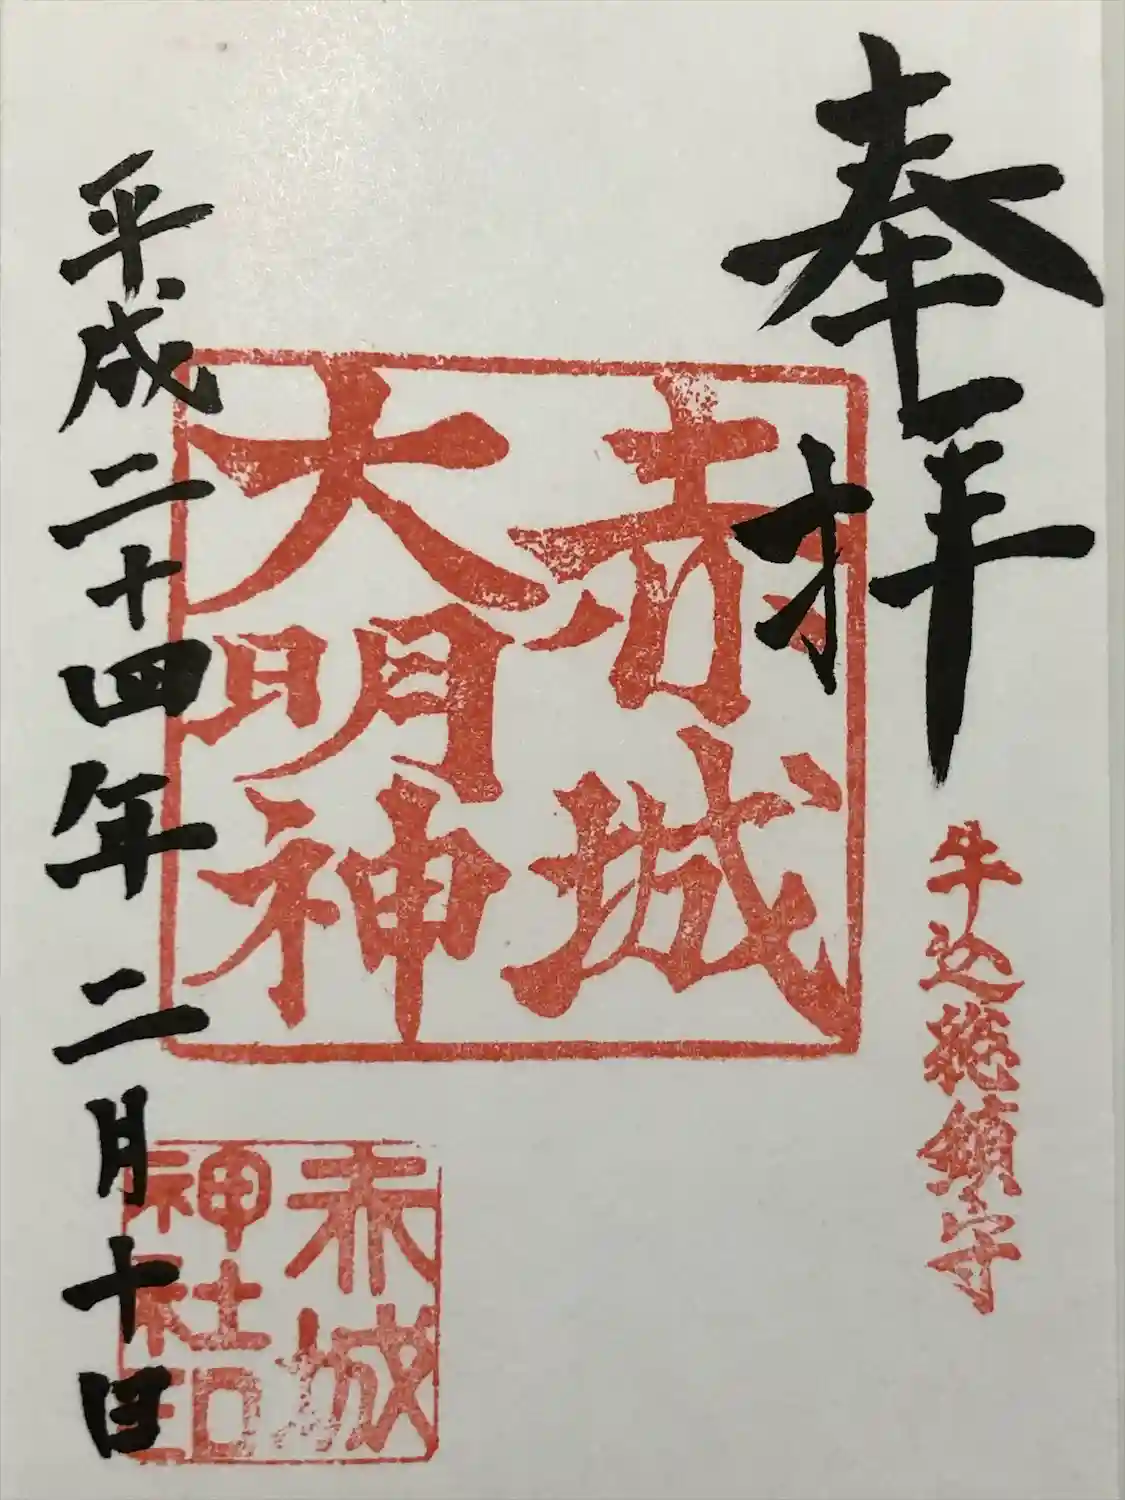 奉拝
牛込総鎮守
赤城
大明神
赤城
神社印
平成二十四年二月十日